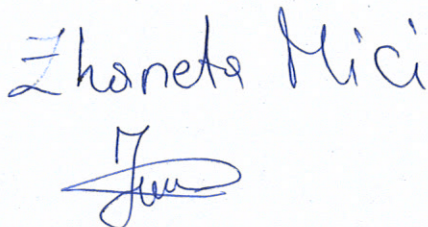 Zhaneta Mici